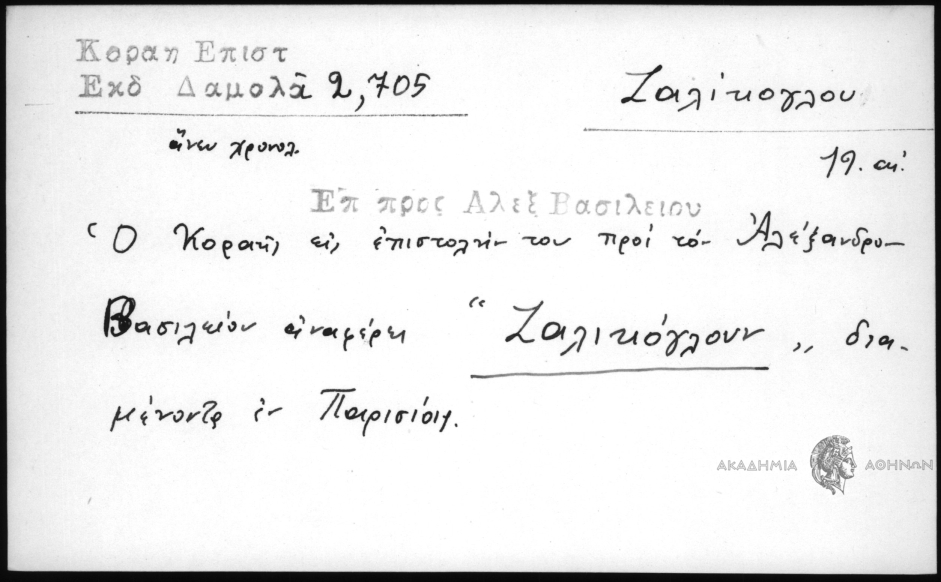 Κοραη Επιστ
Εκδ Δαμολᾶ 2,705
Ζαλίκογλου
ἄνευ χρονολ.
19. αἰ.
Ἐπ προς Αλεξ Βασιλειου
Ὁ Κοραῆς εἰς ἐπιστολὴν του πρὸς τὸν Ἀλέξανδρον
Βασιλείου ἀναφέρει “Ζαλικόγλουν„ δια-
μένοντα ἐν Παρισίοις.
ΑΚΑΔΗΜΙΑ ΑΘΗΝΩΝ